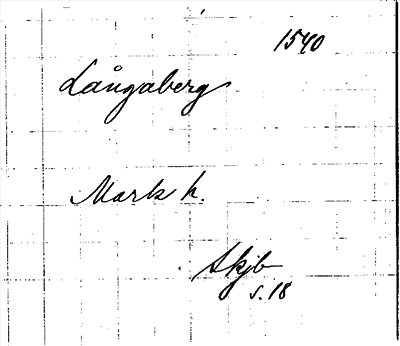 1540
Långaberg
Mark h.
Skjb
s. 18